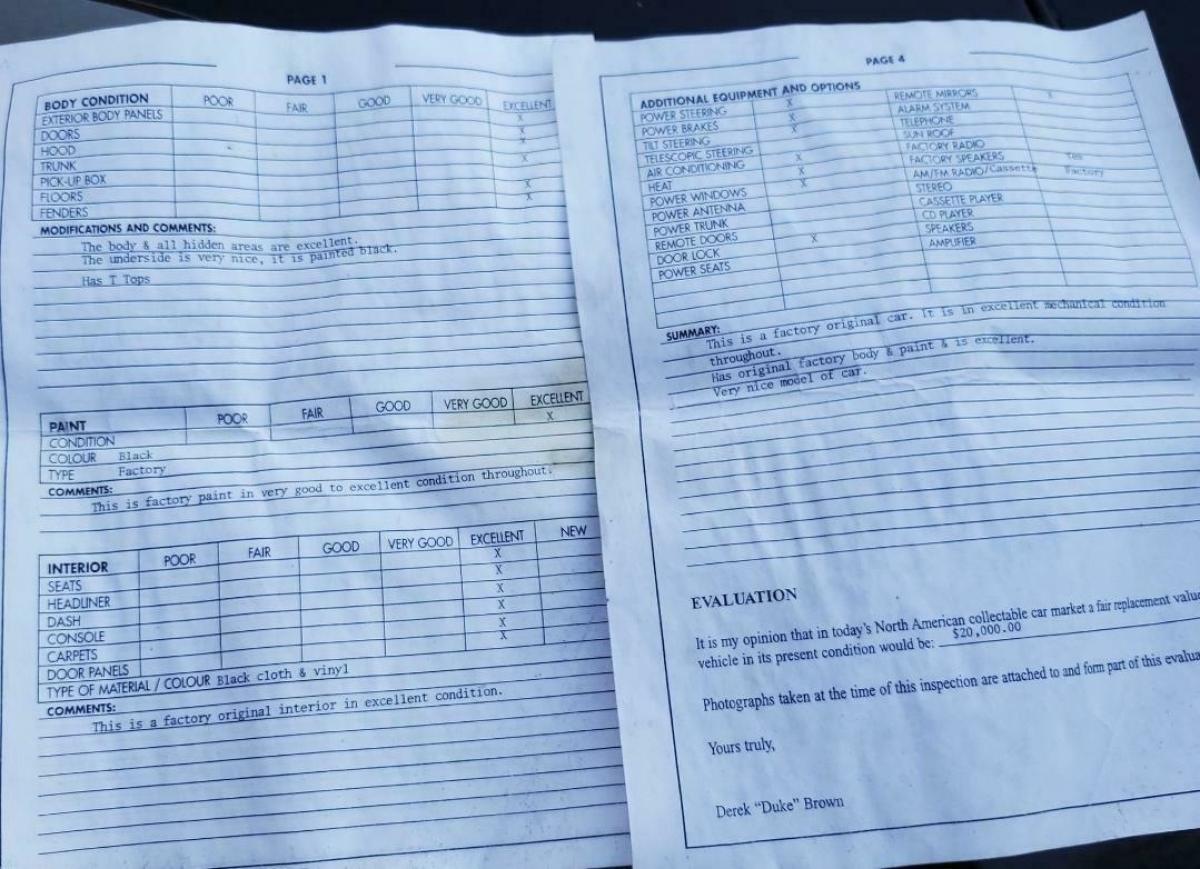 PAGE 1
BODY CONDITION POOR FAIR GOOD VERY GOOD EXCELLENT
EXTERIOR BODY PANELS X
DOORS X
HOOD X
TRUNK X
PICK-UP BOX
FLOORS X
FENDERS X
MODIFICATIONS AND COMMENTS:
The body & all hidden areas are excellent.
The underside is very nice, it is painted black.
Has T Tops
PAINT POOR FAIR GOOD VERY GOOD EXCELLENT
CONDITION X
COLOUR Black
TYPE Factory
COMMENTS:
This is factory paint in very good to excellent condition throughout.
INTERIOR POOR FAIR GOOD VERY GOOD EXCELLENT NEW
SEATS X
HEADLINER X
DASH X
CONSOLE X
CARPETS X
DOOR PANELS X
TYPE OF MATERIAL / COLOUR Black cloth & vinyl
COMMENTS:
This is a factory original interior in excellent condition.
PAGE 4
ADDITIONAL EQUIPMENT AND OPTIONS
POWER STEERING X
POWER BRAKES X
TILT STEERING X
TELESCOPIC STEERING
AIR CONDITIONING X
HEAT X
POWER WINDOWS X
POWER ANTENNA
POWER TRUNK
REMOTE DOORS
DOOR LOCK X
POWER SEATS
REMOTE MIRRORS X
ALARM SYSTEM
TELEPHONE
SUN ROOF
FACTORY RADIO
FACTORY SPEAKERS Yes
AM/FM RADIO/Cassette Factory
STEREO
CASSETTE PLAYER
CD PLAYER
SPEAKERS
AMPLIFIER
SUMMARY:
This is a factory original car. It is in excellent mechanical condition
throughout.
Has original factory body & paint & is excellent.
Very nice model of car.
EVALUATION
It is my opinion that in today's North American collectable car market a fair replacement
vehicle in its present condition would be: $20,000.00
Photographs taken at the time of this inspection are attached to and form part of this
Yours truly,
Derek "Duke" Brown